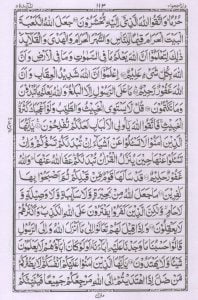 ۱۱۳
حُرُمًا وَاتَّقُوا اللّٰهَ الَّذِیْۤ اِلَیْهِ تُحْشَرُوْنَ جَعَلَ اللّٰهُ الْكَعْبَةَ
الْبَیْتَ الْحَرَامَ قِیٰمًا لِّلنَّاسِ وَالشَّهْرَ الْحَرَامَ وَالْهَدْیَ وَالْقَلَآىِٕدَ
ذٰلِكَ لِتَعْلَمُوْۤا اَنَّ اللّٰهَ یَعْلَمُ مَا فِی السَّمٰوٰتِ وَمَا فِی الْاَرْضِ وَاَنَّ
اللّٰهَ بِكُلِّ شَیْءٍ عَلِیْمٌ اِعْلَمُوْۤا اَنَّ اللّٰهَ شَدِیْدُ الْعِقَابِ وَاَنَّ
اللّٰهَ غَفُوْرٌ رَّحِیْمٌ مَا عَلَی الرَّسُوْلِ اِلَّا الْبَلٰغُ وَاللّٰهُ یَعْلَمُ مَا تُبْدُوْنَ
وَمَا تَكْتُمُوْنَ قُلْ لَّا یَسْتَوِی الْخَبِیْثُ وَالطَّیِّبُ وَلَوْ اَعْجَبَكَ كَثْرَةُ
الْخَبِیْثِ فَاتَّقُوا اللّٰهَ یٰۤاُولِی الْاَلْبَابِ لَعَلَّكُمْ تُفْلِحُوْنَ یٰۤاَیُّهَا
الَّذِیْنَ اٰمَنُوْا لَا تَسْـَٔلُوْا عَنْ اَشْیَآءَ اِنْ تُبْدَ لَكُمْ تَسُؤْكُمْ وَاِنْ
تَسْـَٔلُوْا عَنْهَا حِیْنَ یُنَزَّلُ الْقُرْاٰنُ تُبْدَ لَكُمْ عَفَا اللّٰهُ عَنْهَا وَاللّٰهُ
غَفُوْرٌ حَلِیْمٌ قَدْ سَاَلَهَا قَوْمٌ مِّنْ قَبْلِكُمْ ثُمَّ اَصْبَحُوْا بِهَا
كٰفِرِیْنَ مَا جَعَلَ اللّٰهُ مِنْۢ بَحِیْرَةٍ وَّلَا سَآىِٕبَةٍ وَّلَا وَصِیْلَةٍ وَّلَا
حَامٍ وَّلٰكِنَّ الَّذِیْنَ كَفَرُوْا یَفْتَرُوْنَ عَلَی اللّٰهِ الْكَذِبَ وَاَكْثَرُهُمْ
لَا یَعْقِلُوْنَ وَاِذَا قِیْلَ لَهُمْ تَعَالَوْا اِلٰی مَاۤ اَنْزَلَ اللّٰهُ وَاِلَی الرَّسُوْلِ
قَالُوْا حَسْبُنَا مَا وَجَدْنَا عَلَیْهِ اٰبَآءَنَا اَوَلَوْ كَانَ اٰبَآؤُهُمْ لَا یَعْلَمُوْنَ
شَیْـًٔا وَّلَا یَهْتَدُوْنَ یٰۤاَیُّهَا الَّذِیْنَ اٰمَنُوْا عَلَیْكُمْ اَنْفُسَكُمْ لَا یَضُرُّكُمْ
مَّنْ ضَلَّ اِذَا اهْتَدَیْتُمْ اِلَی اللّٰهِ مَرْجِعُكُمْ جَمِیْعًا فَیُنَبِّئُكُمْ